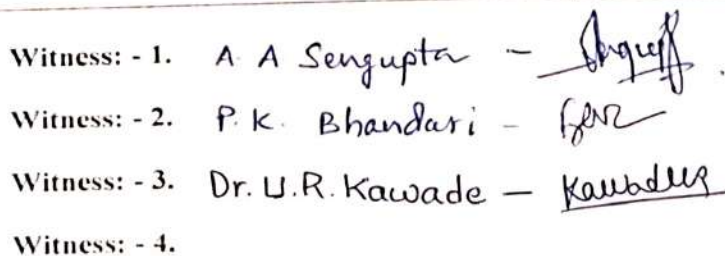 Witness: - 1. A A Sengupta -
Witness: - 2. P. K. Bhandari -
Witness: - 3. Dr. U.R. Kawade - Kawadeug
Witness: - 4.